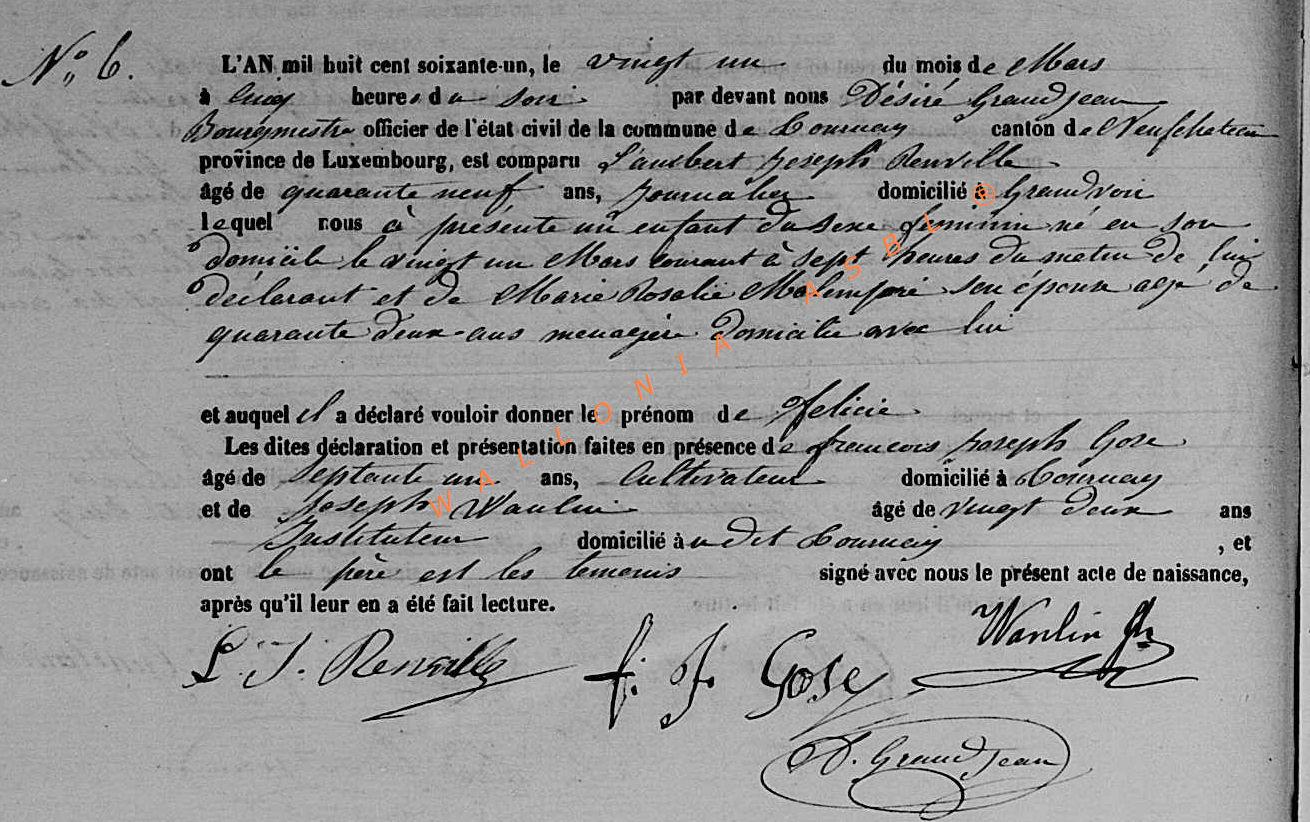 N° 6.
L'AN mil huit cent soixante-un, le vingt un du mois de Mars
à cinq heures du soir par devant nous Désiré Grandjean
Bourgmestre officier de l'état civil de la commune de Tournay canton de Neufchateau
province de Luxembourg, est comparu Lambert Joseph Renville
âgé de quarante neuf ans, Journalier domicilié à Grandvoir
lequel nous à présenté un enfant du sexe feminin né en son
domicile le vingt un Mars courant à sept heures du matin de lui
déclarant et de Marie Rosalie son épouse agé de
quarante deux ans menagère domicilié avec lui
et auquel il a déclaré vouloir donner le prénom de felicie
Les dites déclaration et présentation faites en présence de francois Joseph Gose
âgé de septante un ans, Cultivateur domicilié à Tournay
et de Joseph Wanlin âgé de vingt deux ans
Instituteur domicilié à u dit Tournay , et
ont le père est les temoins signé avec nous le présent acte de naissance,
après qu'il leur en a été fait lecture.
L. J. Renville f. J. Gose Wanlin
D. Grandjean
WALLONIA ASBL @